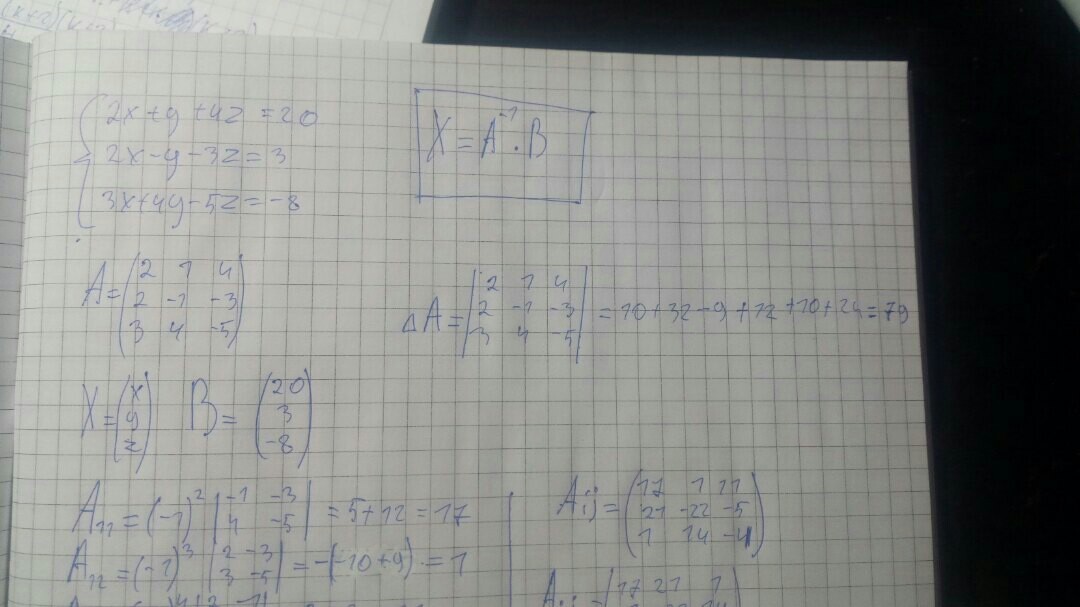 2x+y+4z=20
2x-y-3z=3
3x+4y-5z=-8
X=A⁻¹·B
A=(2 1 4
2 -1 -3
3 4 -5)
ΔA=|2 1 4
2 -1 -3
3 4 -5|=10+32-9+12+10+24=79
X=(x
y
z)
B=(20
3
-8)
A₁₁=(-1)²|-1 -3
4 -5|=5+12=17
A₁₂=(-1)³|2 -3
3 -5|=-(-10+9)=1
Aij=(17 1 11
21 -22 -5
1 14 -4)
17 21 1